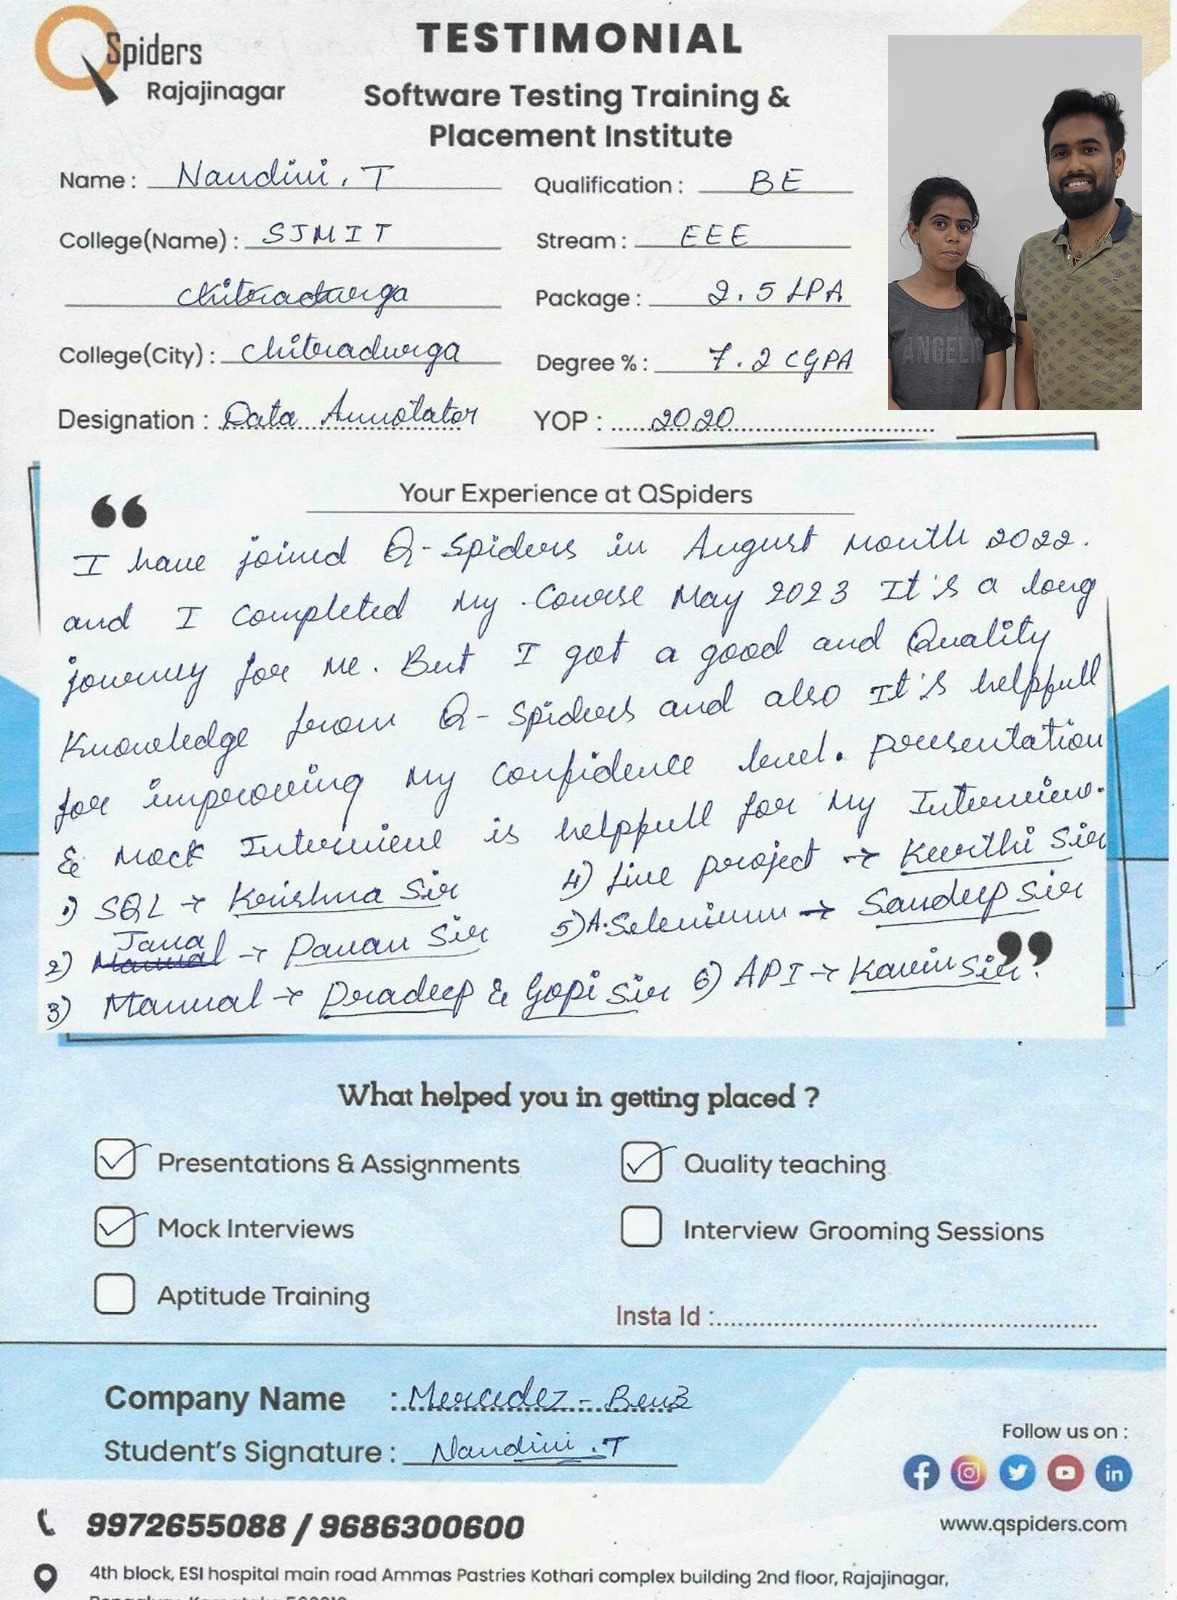 TESTIMONIAL
QSpiders
Rajajinagar
Software Testing Training &
Placement Institute
Name : Nandini . T
Qualification : BE
College(Name) : SJMIT
Stream : EEE
Chitradurga
Package : 2.5 LPA
College(City) : Chitradurga
Degree % : 7.2 CGPA
Designation : Data Annotator
YOP : 2020
ANGELIC
Your Experience at QSpiders
“
I have joined Q-Spiders in August month 2022.
and I completed my Course May 2023 It's a long
journey for me. But I got a good and Quality
Knowledge from Q-Spiders and also It's helpfull
for improving my confidence level. presentation
& Mock Interview is helpfull for My Interview.
1) SQL → Krishna Sir 4) Live project → Keerthi Sir
2) Java → Pavan Sir 5) A.Selenium → Sandeep Sir
3) Manual → Pradeep & Gopi Sir 6) API → Kavin Sir.
”
What helped you in getting placed ?
Presentations & Assignments
Quality teaching
Mock Interviews
Interview Grooming Sessions
Aptitude Training
Insta Id :
Company Name : Mercedez - Benz
Student's Signature : Nandini . T
Follow us on :
9972655088 / 9686300600
www.qspiders.com
4th block, ESI hospital main road Ammas Pastries Kothari complex building 2nd floor, Rajajinagar,